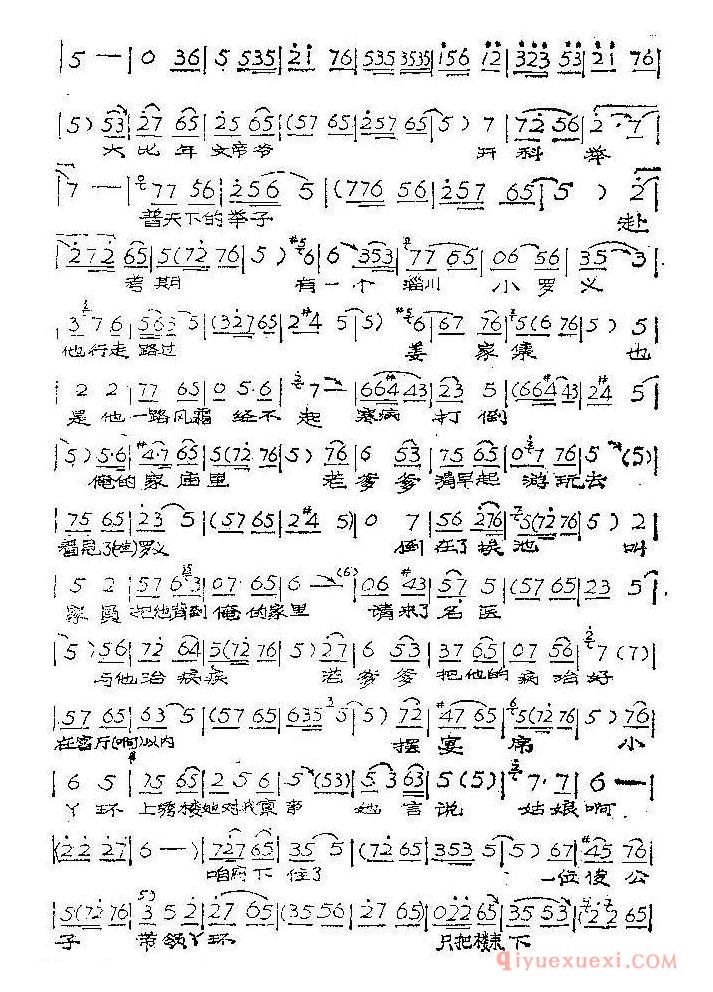 5 — | 0 36 | 5 535 | 2i 76 | 535 3535 | i56 i2 | 323 53 | 2i 76 |
5) 53 | 27 65 | 25 65 | (57 65 | 257 65 | 5) 7 | 72 56 | 2·7 |
大比年 文帝爷 开科 举
7 — | 77 56 | 256 5 | (776 56 | 257 65 | 5 ) 2 |
普天下的举子 赴
272 65 | 5(72 76 | 5) 6 | 6 353 | 77 65 | 06 56 | 35 3 |
考期 有一个 淄川 小罗义
3 7 6 | 565 5 | (327 65 | 2#4 5 | 5) 6 | 67 76 | 5(6 76 | 5) 5 |
他行走 路过 姜家集 也
2 2 | 77 65 | 0 5·6 | 7 — | (6644 43 | 23 5 | (664 43 | 2#4 5 |
是他一路风霜 经不起 寒病 打倒
5) 5·6 | #4·7 65 | 5(72 76 | 5) 76 | 6 53 | 75 65 | 07 76 | 5 (5) |
俺的家庙里 老爹爹清早起 游玩去
75 65 | 23 5 | (57 65 | 2#4 5) | 0 7 | 56 276 | 5(72 76 | 5) 2 |
罗义 倒在了 叫
5 2 | 57 6 3 | 07·65 | 6 — (6) | 06 #43 | 57 5 | (57 65 | 23 5 |
家员 把他背到俺的家里 请来了名医
5) 56 | 72 64 | 5(72 76 | 5) 27 | 6 53 | 37 65 | 07 56 | 7 (7) |
与他治疾病 老爹爹把他的病治好
57 65 | 63 5 | (57 65 | 635 5 | 5) 72 | #47 65 | 5(72 76 | 5) 76 |
在客厅(啊)以内 摆宴席 小
6 5 | 75 65 | 2 5 6 | 5 (53) | 5 3 63 | 5 (5) | 7·7 | 6 — |
丫环 上绣楼她对我禀事 她言说 姑娘啊
(22 27 | 6 — ) | 727 65 | 35 5 | (72 65 | 353 5 | 5) 67 | #45 76 |
咱府下 住了 一位俊公
5(72 76 | 3 5 2 | 27 65 | 5 65 | 5 65 | 022 65 | 35 53 | (22 65 |
子 带领丫环 只把楼下
qiyuexuexi.com